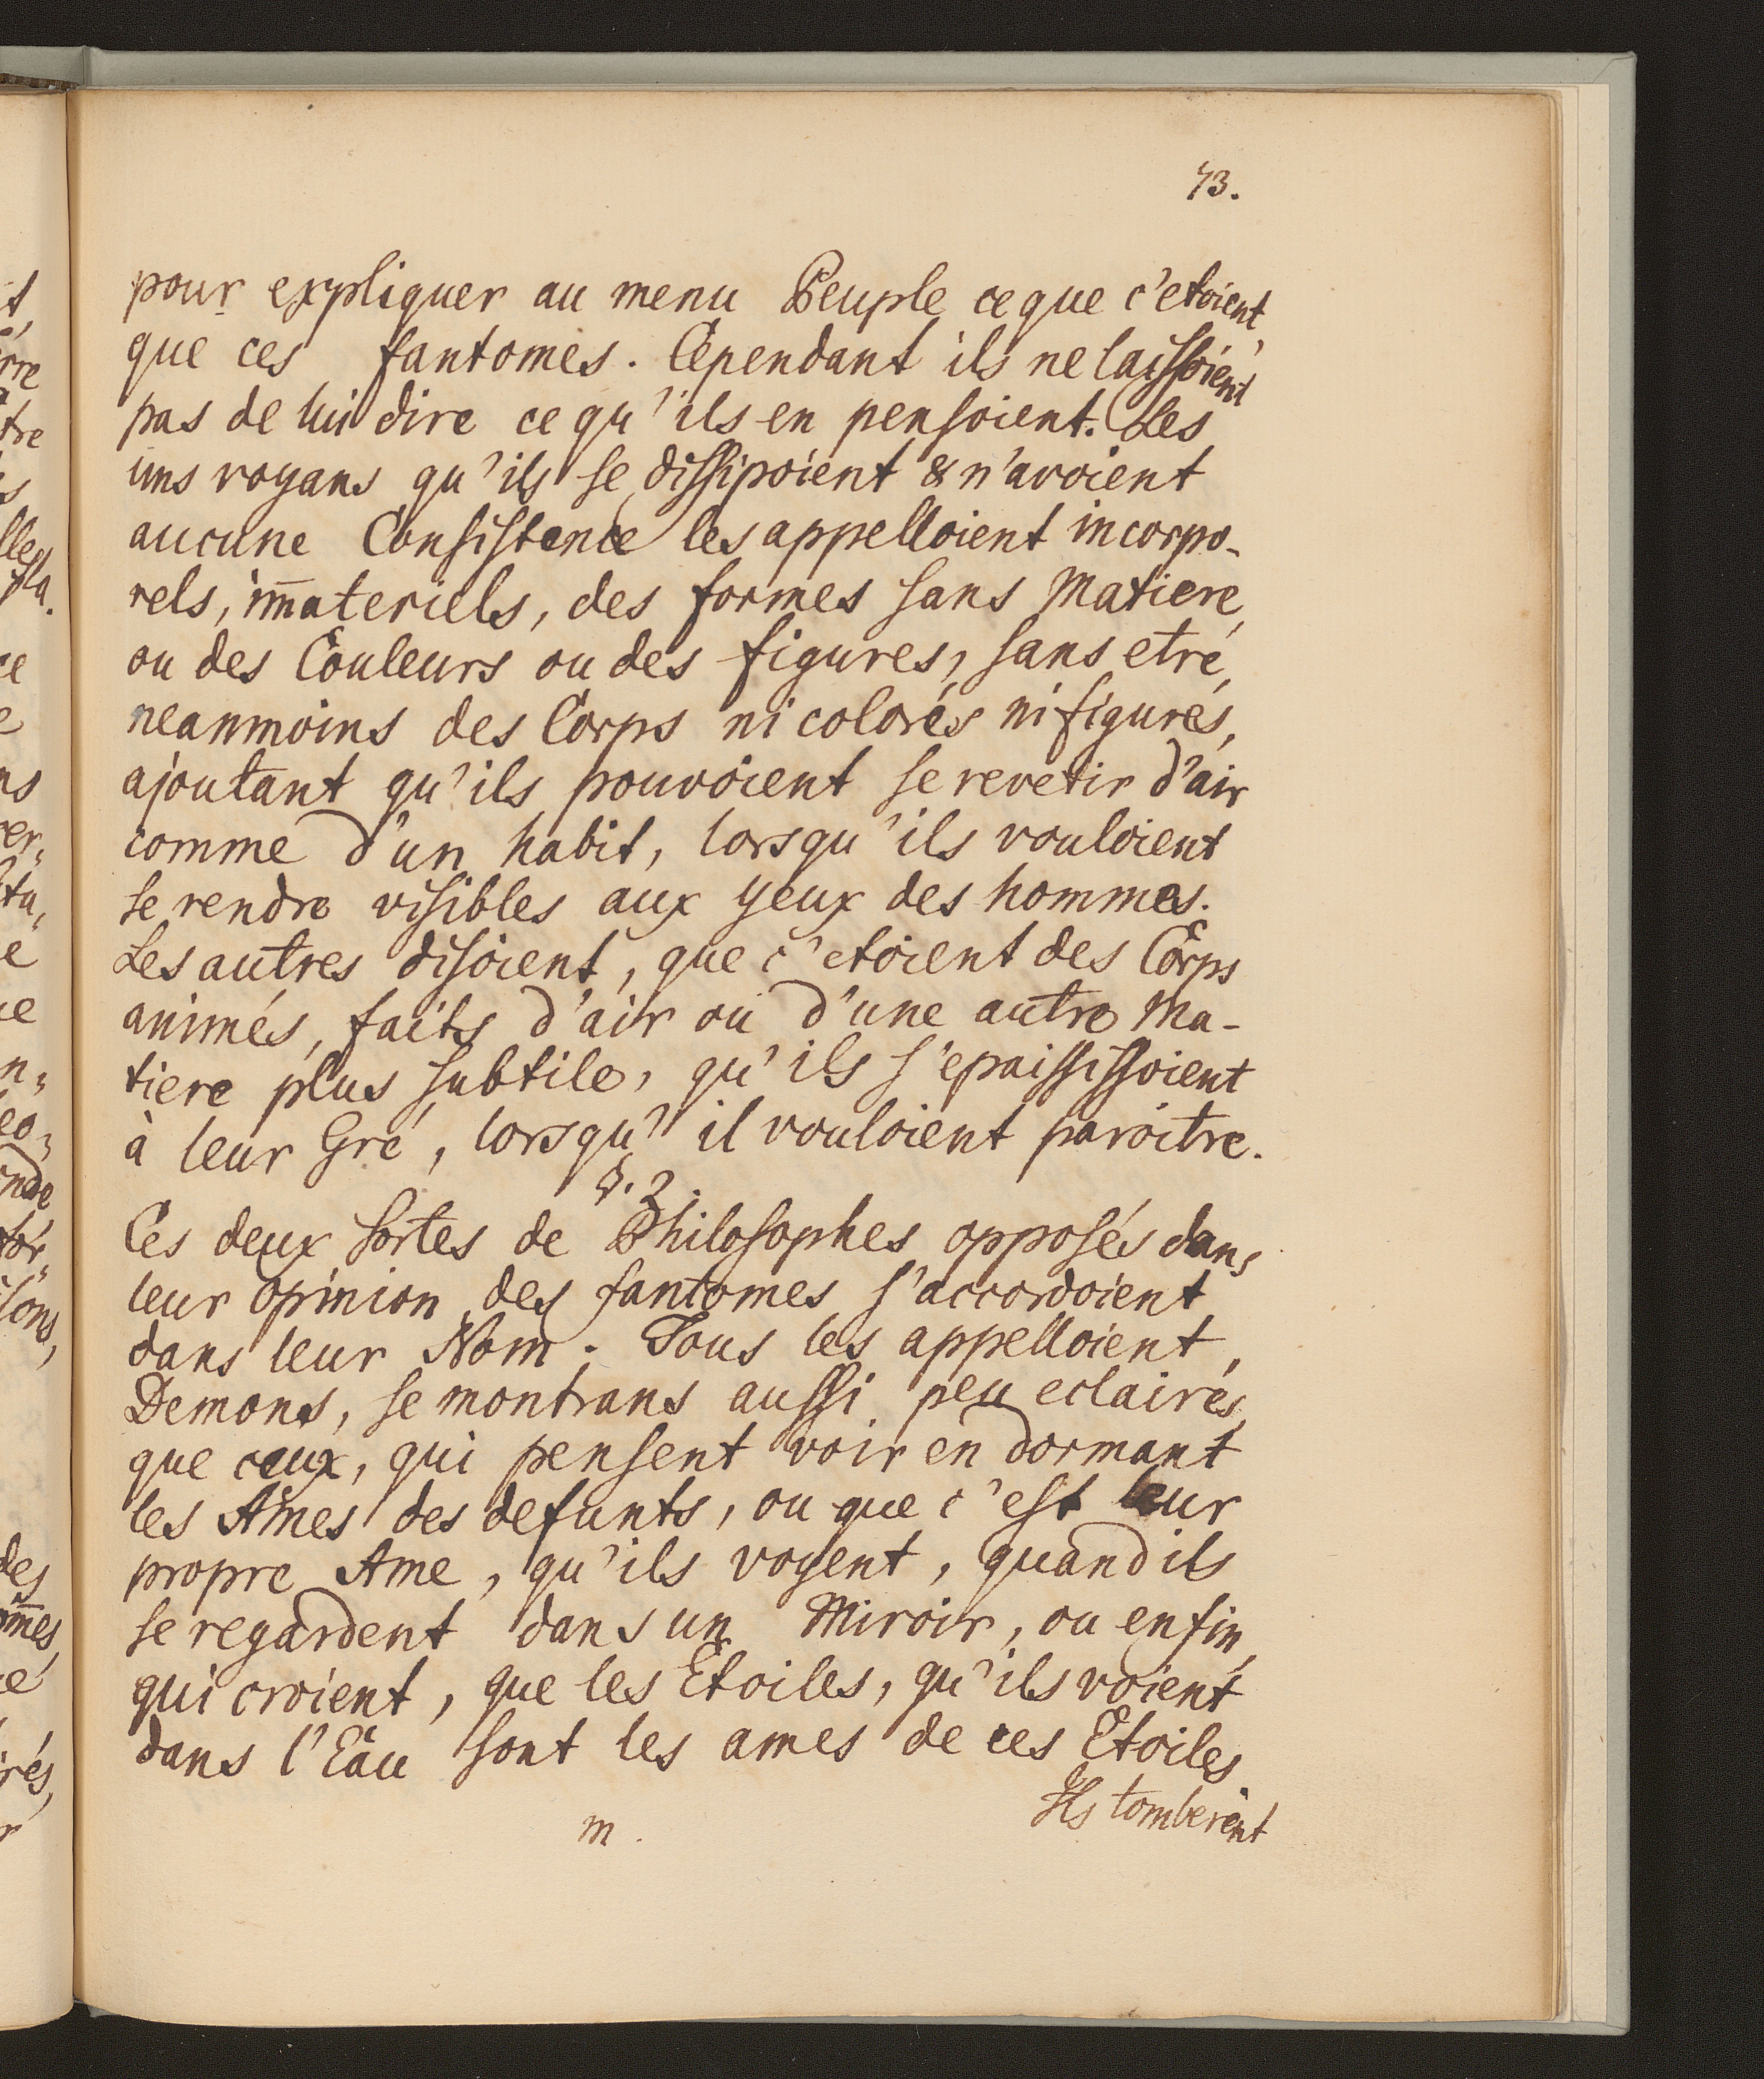 73.
pour expliquer au menu Peuple ce que c'etoient
que ces fantomes. Cependant ils ne laissoient
pas de lui dire ce qu'ils en pensoient. Les
uns voyans qu'ils se dissipoient & n'avoient
aucune Consistence les appelloient incorpo-
rels, im̄ateriels, des formes sans Matiere,
ou des Couleurs ou des figures, sans etre,
neanmoins des Corps ni colorés ni figurés,
ajoutant qu'ils pouvoient se revetir d'air
comme d'un habit, lorsqu'ils vouloient
se rendre visibles aux yeux des hommes.
Les autres disoient, que c'etoient des Corps
animés, faits d'air ou d'une autre Ma-
tiere plus subtile, qu'ils s'epaississoient
à leur Gré, lorsqu'il vouloient paroitre.
§. 2.
Ces deux sortes de Philosophes opposés dans
leur opinion des fantomes s'accordoient
dans leur Nom. Tous les appelloient
Demons, se montrans aussi peu eclairés
que ceux, qui pensent voir en dormant
les Ames des defunts, ou que c'est leur
propre Ame, qu'ils voyent, quand ils
se regardent dans un Miroir, ou enfin,
qui croient, que les Etoiles, qu'ils voient
dans l'Eau sont les ames de ces Etoiles.
m. Ils tomberent